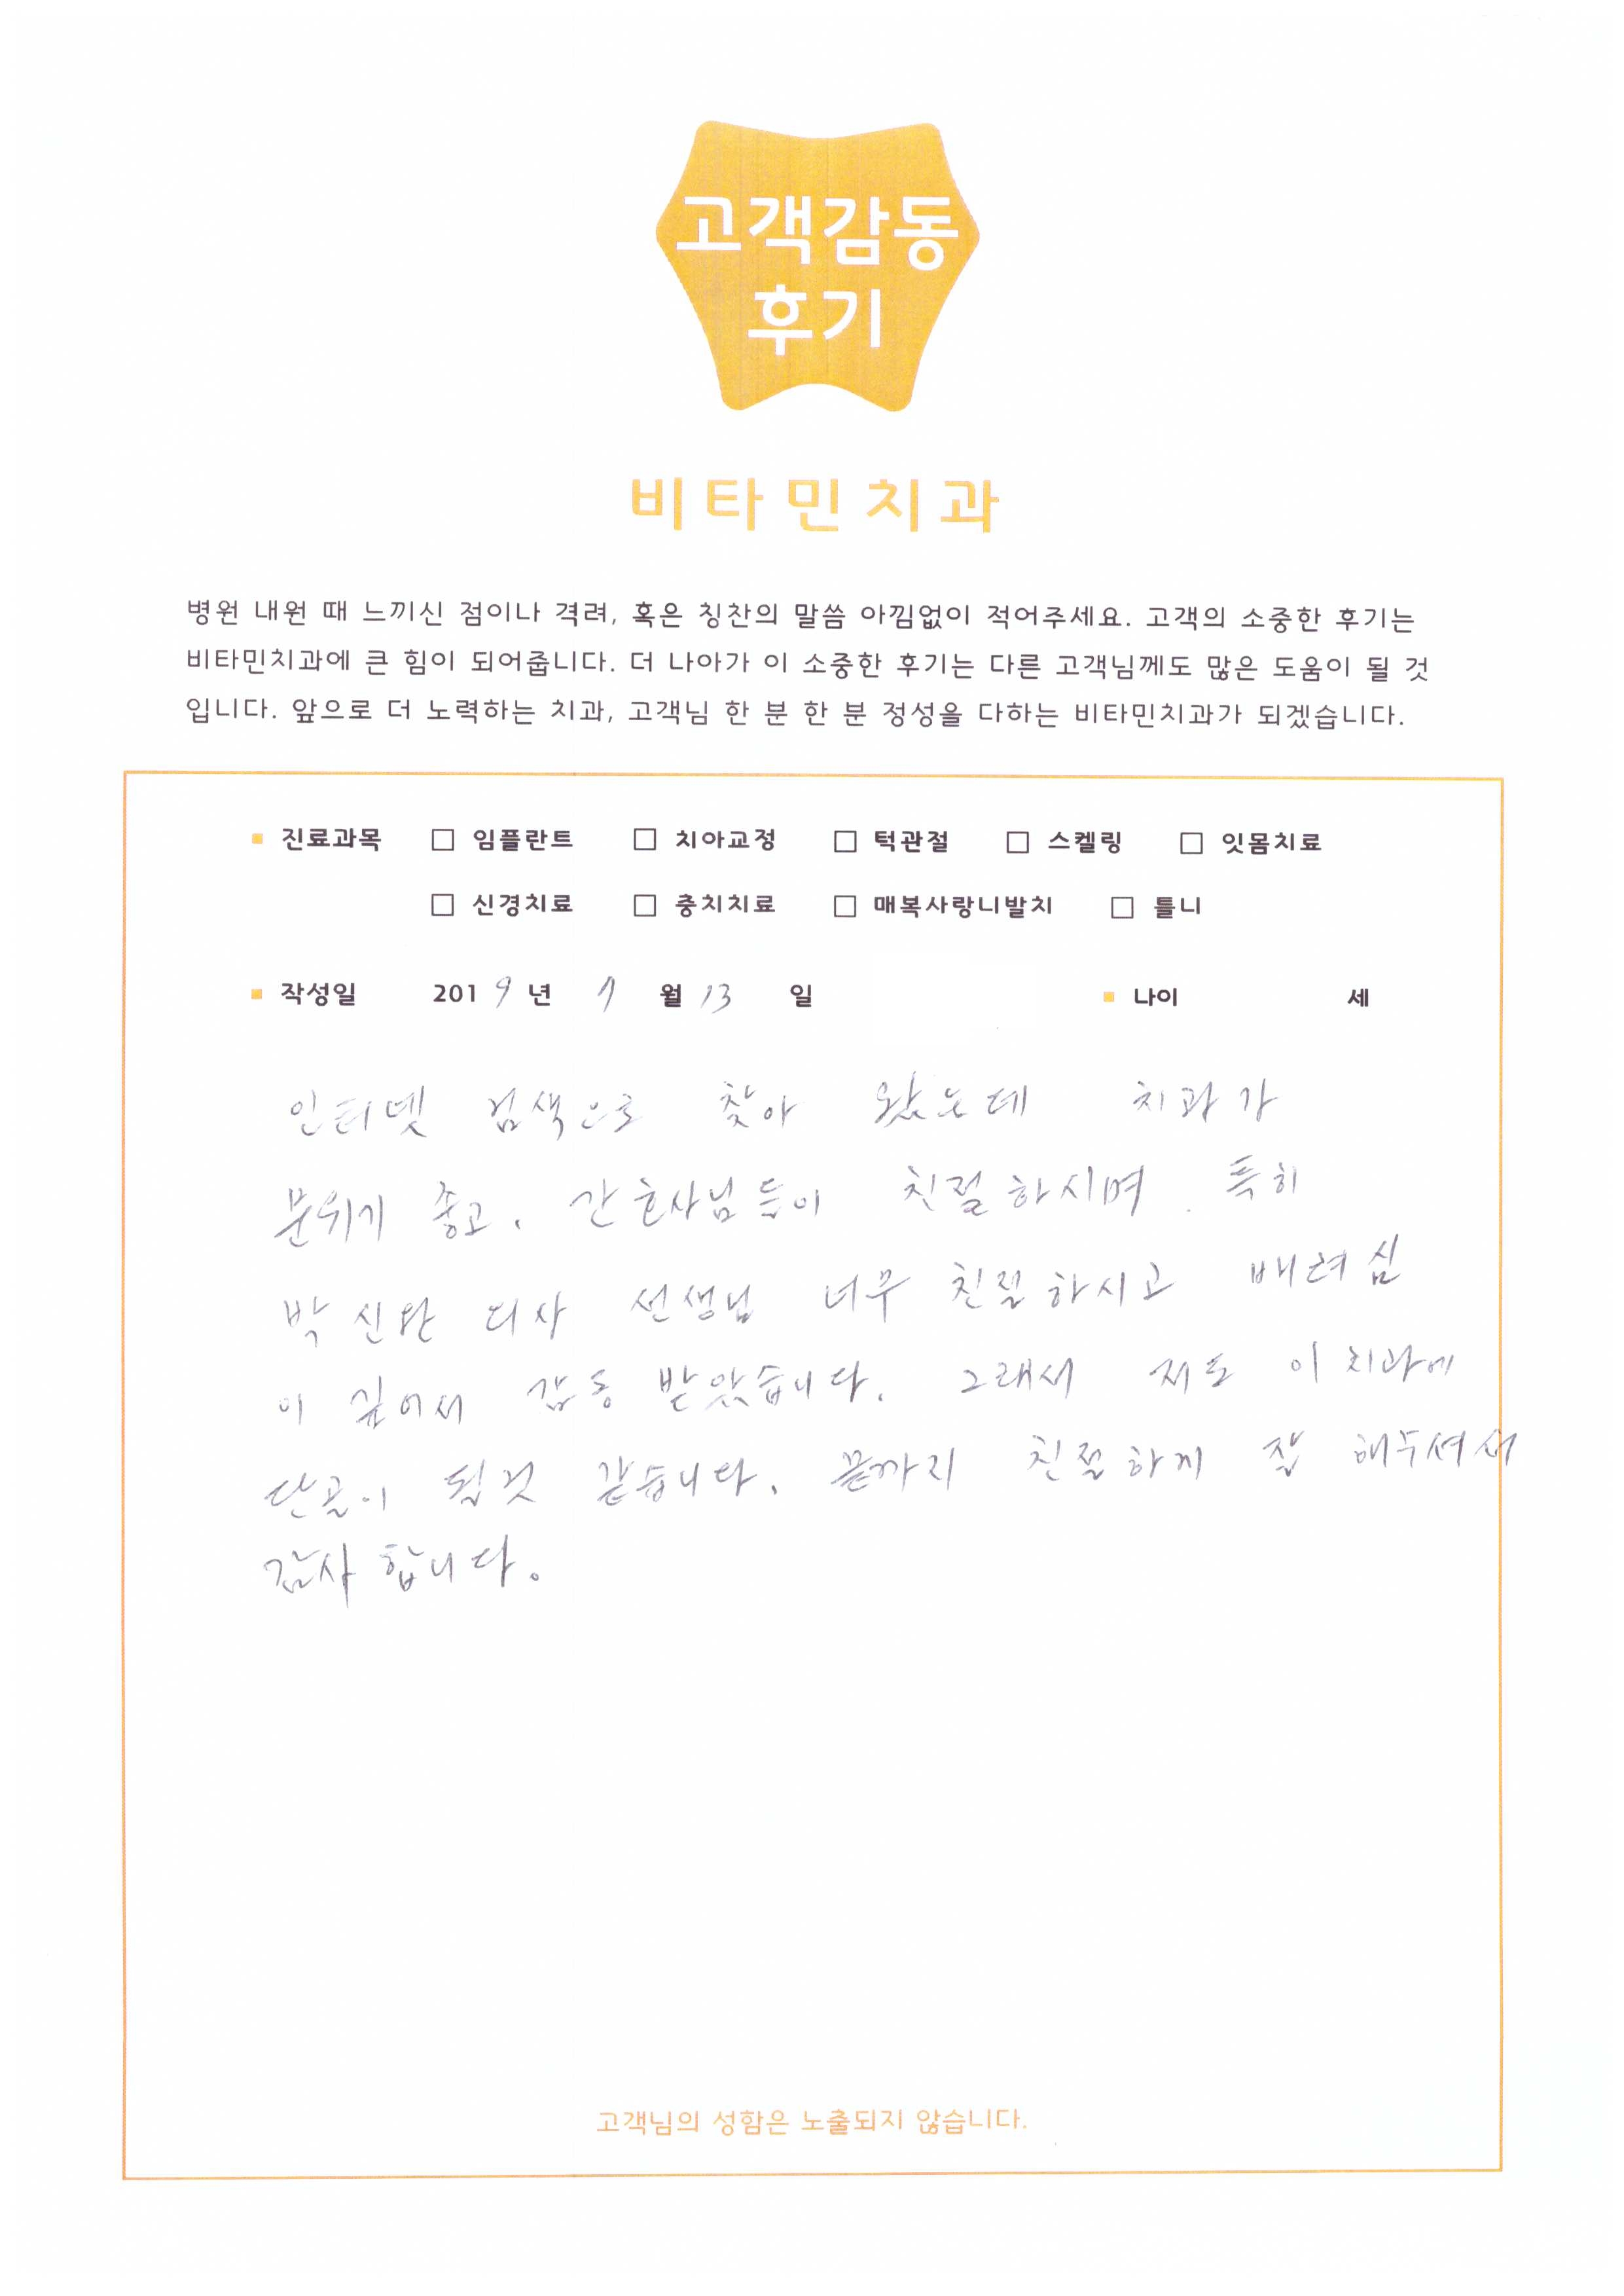 고객감동
후기
비타민치과
병원 내원 때 느끼신 점이나 격려, 혹은 칭찬의 말씀 아낌없이 적어주세요. 고객의 소중한 후기는
비타민치과에 큰 힘이 되어줍니다. 더 나아가 이 소중한 후기는 다른 고객님께도 많은 도움이 될 것
입니다. 앞으로 더 노력하는 치과, 고객님 한 분 한 분 정성을 다하는 비타민치과가 되겠습니다.
진료과목 □ 임플란트 □ 치아교정 □ 턱관절 □ 스켈링 □ 잇몸치료
□ 신경치료 □ 충치치료 □ 매복사랑니발치 □ 틀니
작성일 2019년 7월 13일 나이 세
인터넷 검색으로 찾아 왔는데 치과가
분위기 좋고, 간호사님들이 친절하시며, 특히
박신완 의사 선생님 너무 친절하시고 배려심
이 깊어서 감동 받았습니다. 그래서 저도 이 치과에
단골이 될것 같습니다. 끝까지 친절하게 잘 해주셔서
감사합니다.
고객님의 성함은 노출되지 않습니다.